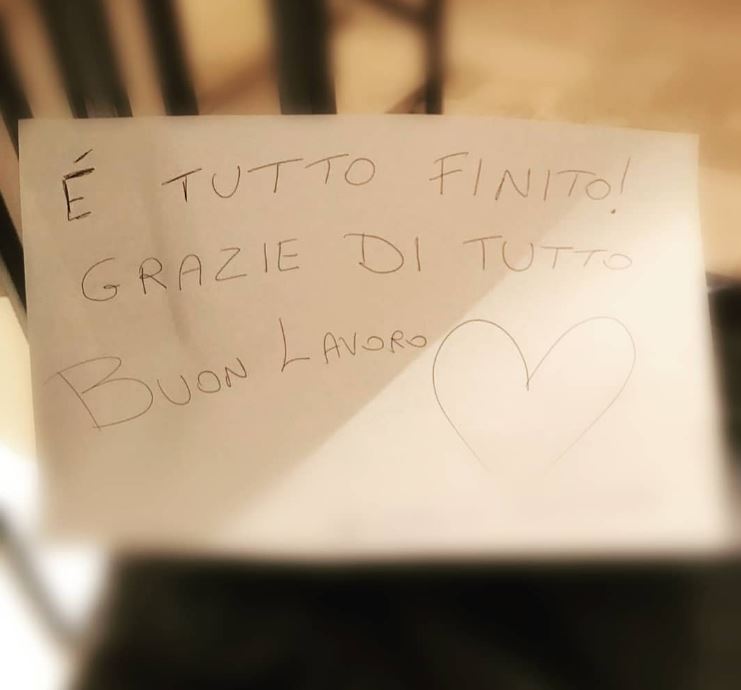 É TUTTO FINITO!
GRAZIE DI TUTTO
BUON LAVORO